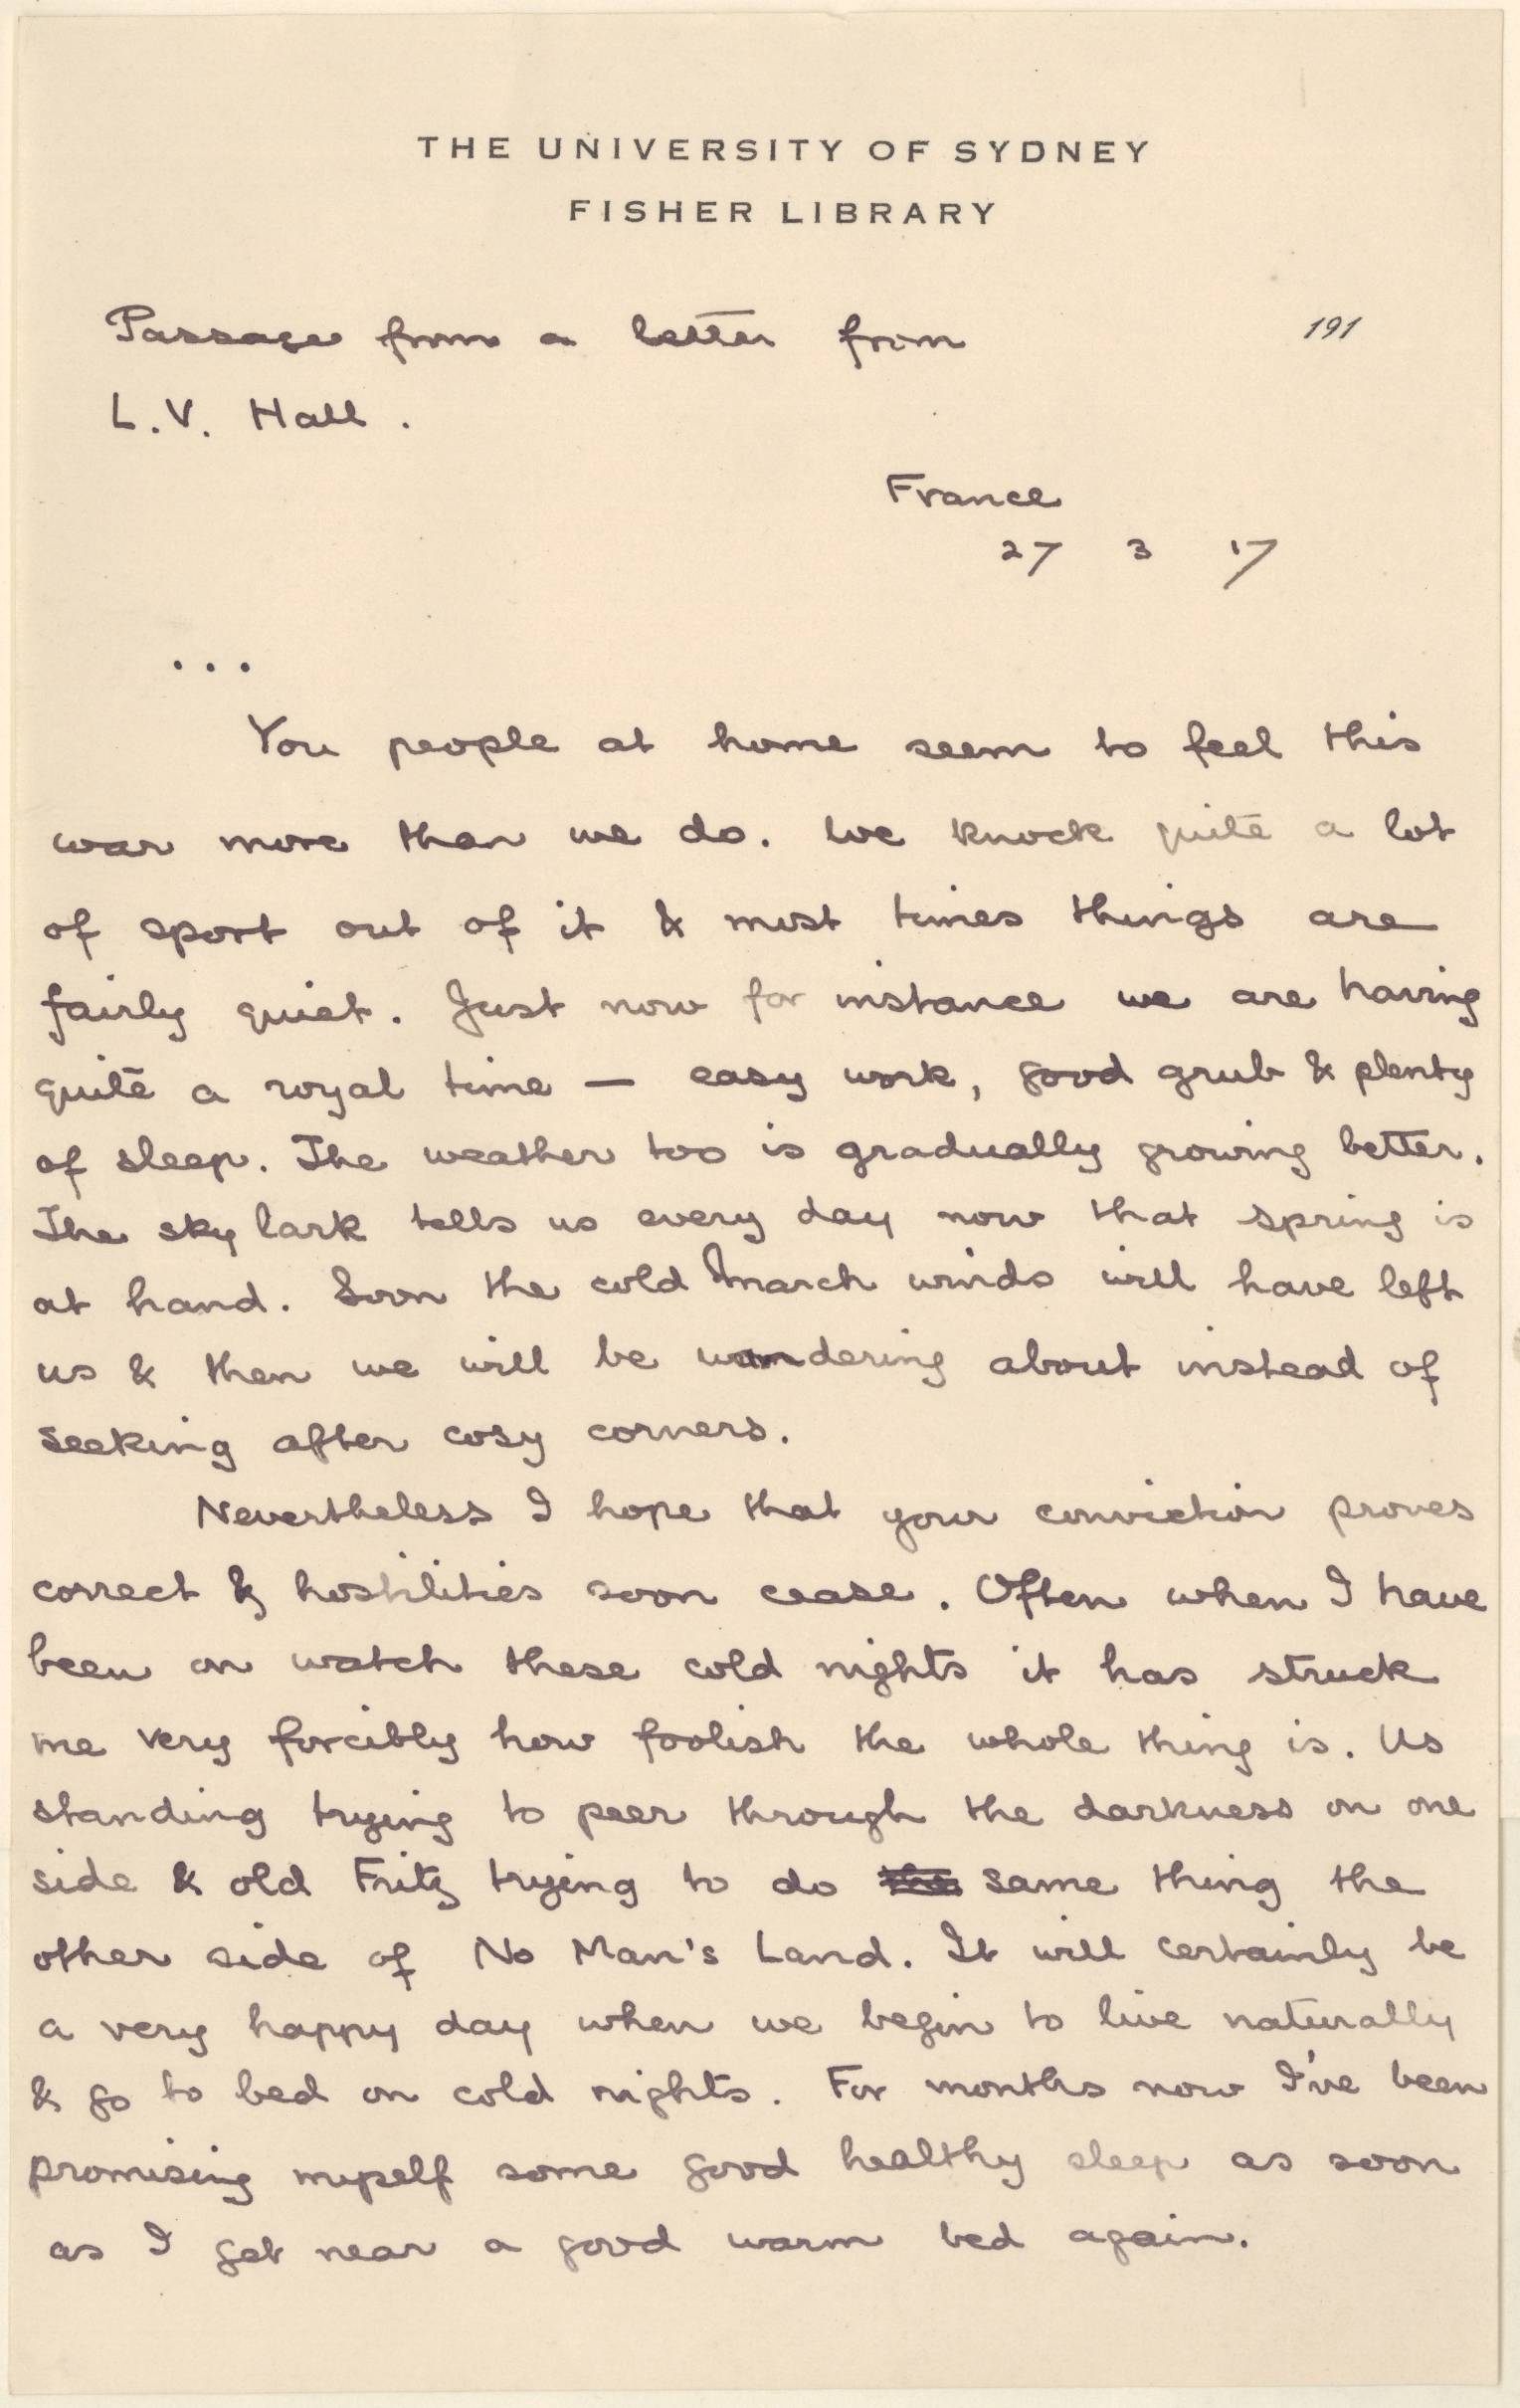 THE UNIVERSITY OF SYDNEY
FISHER LIBRARY
Passage from a letter from
191
L.V. Hall.
France
27 3 17
...
You people at home seem to feel this
war more than we do. We knock quite a lot
of sport out of it & most times things are
fairly quiet. Just now for instance we are having
quite a royal time — easy work, good grub & plenty
of sleep. The weather too is gradually growing better.
The sky lark tells us every day now that spring is
at hand. Soon the cold March winds will have left
us & then we will be wandering about instead of
seeking after cosy corners.
Nevertheless I hope that your conviction proves
correct & hostilities soon cease. Often when I have
been on watch these cold nights it has struck
me very forcibly how foolish the whole thing is. Us
standing trying to peer through the darkness on one
side & old Fritz trying to do the same thing the
other side of No Man's Land. It will certainly be
a very happy day when we begin to live naturally
& go to bed on cold nights. For months now I've been
promising myself some good healthy sleep as soon
as I get near a good warm bed again.